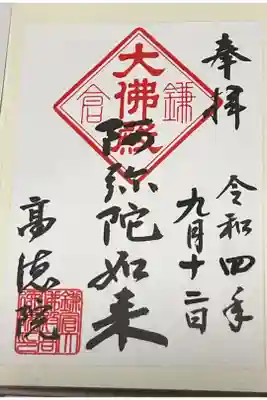 奉拝
令和四年
九月十二日
鎌倉
大佛殿
阿弥陀如来
高徳院